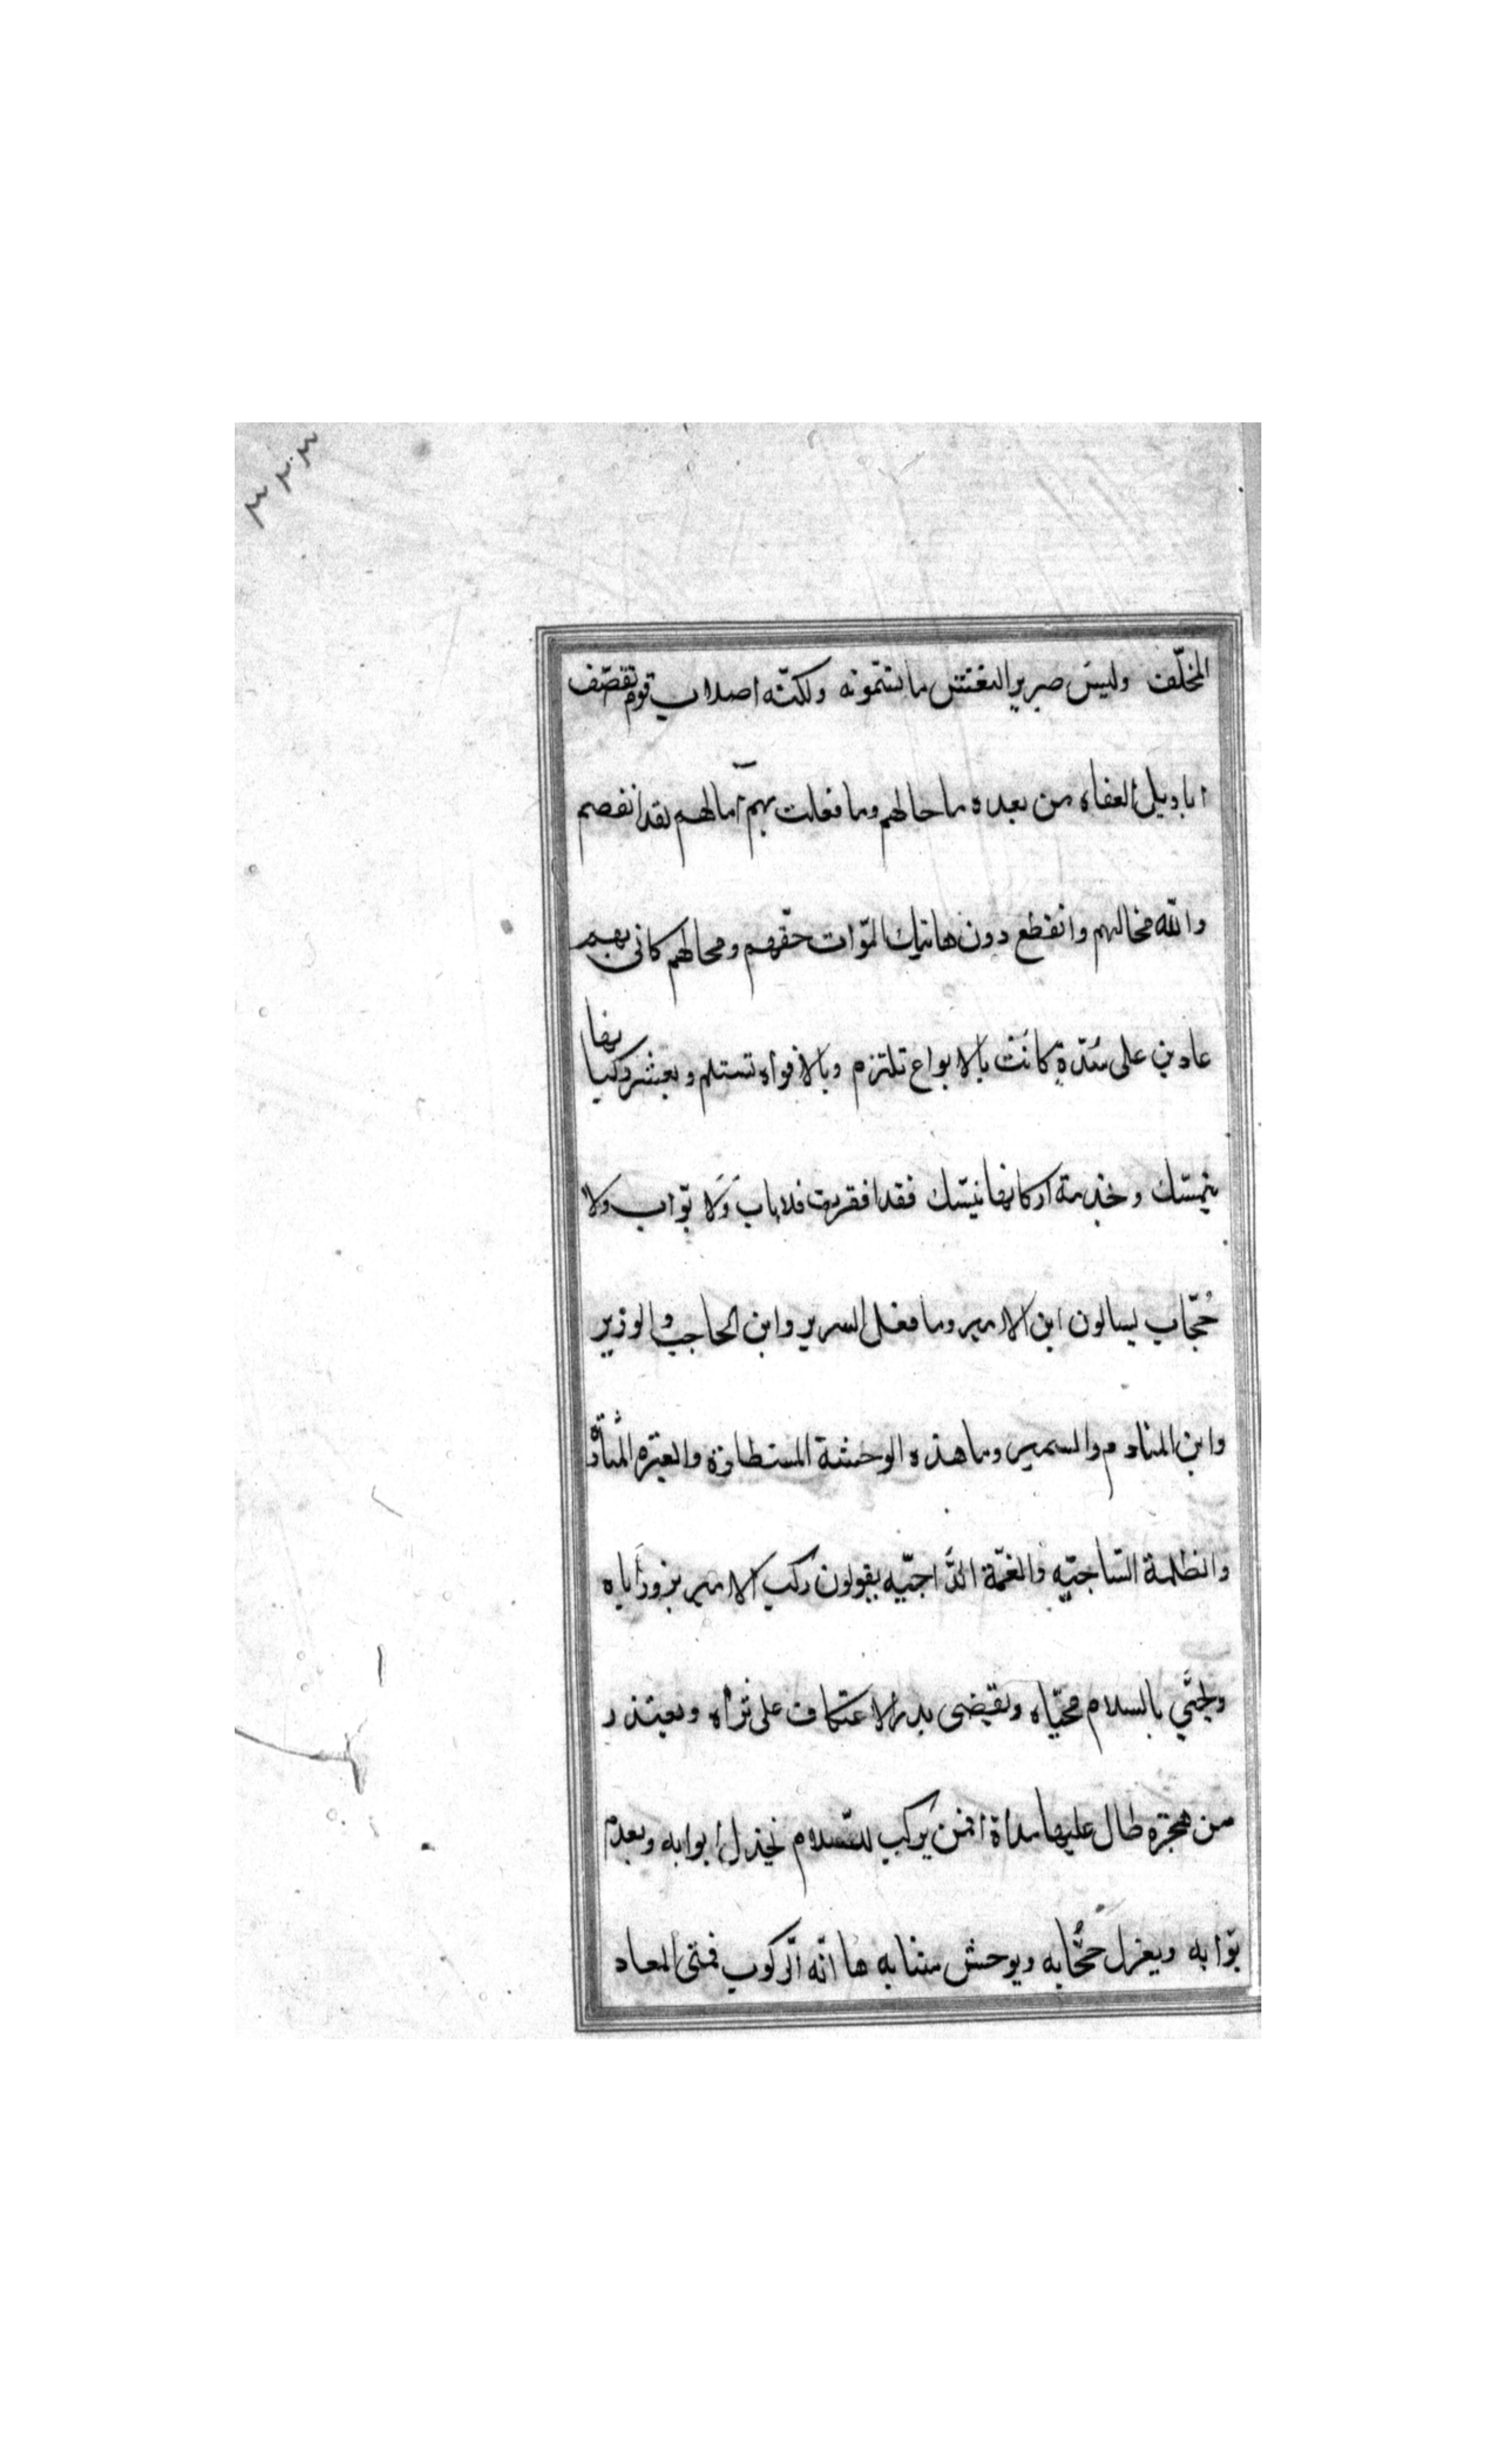 ٣٢٣
المخلّف وليس صرير النعش ما تسمونه ولكنّه اصلاب قوم تقصّف
اباويل العفاه من بعده ما حالهم وما فعلت بهم آمالهم لقد انفصم
والله مخالهم وانقطع دون هاتيك المرّات حقّهم ومحالهم كانى بهم
عادين على سُدّةٍ كانَتْ بالابواع تلتزم وبالافواه تستلم وبعيشر وكيانها
يتمسّك وخدمة اركانها يتنسّك فقد افقرت فلا بابَ وَلا بوّاب ولا
حُجّاب يسالون اين الامير وما فعل السرير واين الحاجب والوزير
واين المنادم والسمير وما هذه الوحشة المستطارة والعبرة المثارة
والظلمة السّاجيّه والغمّة الدّاجيّه يقولون ركب الامير يزور اباه
ويحيّي بالسلام محيّاه ويقيضى بدر الاعتكاف على ثراه ويعتذر
من هجرة طال عليها مداه افمن يركب للسّلام يخذل ابوابه ويعدم
بوّابه ويعزل حجّابه ويوحش منتابه ها انّه الرّكوب فمتى المعاد